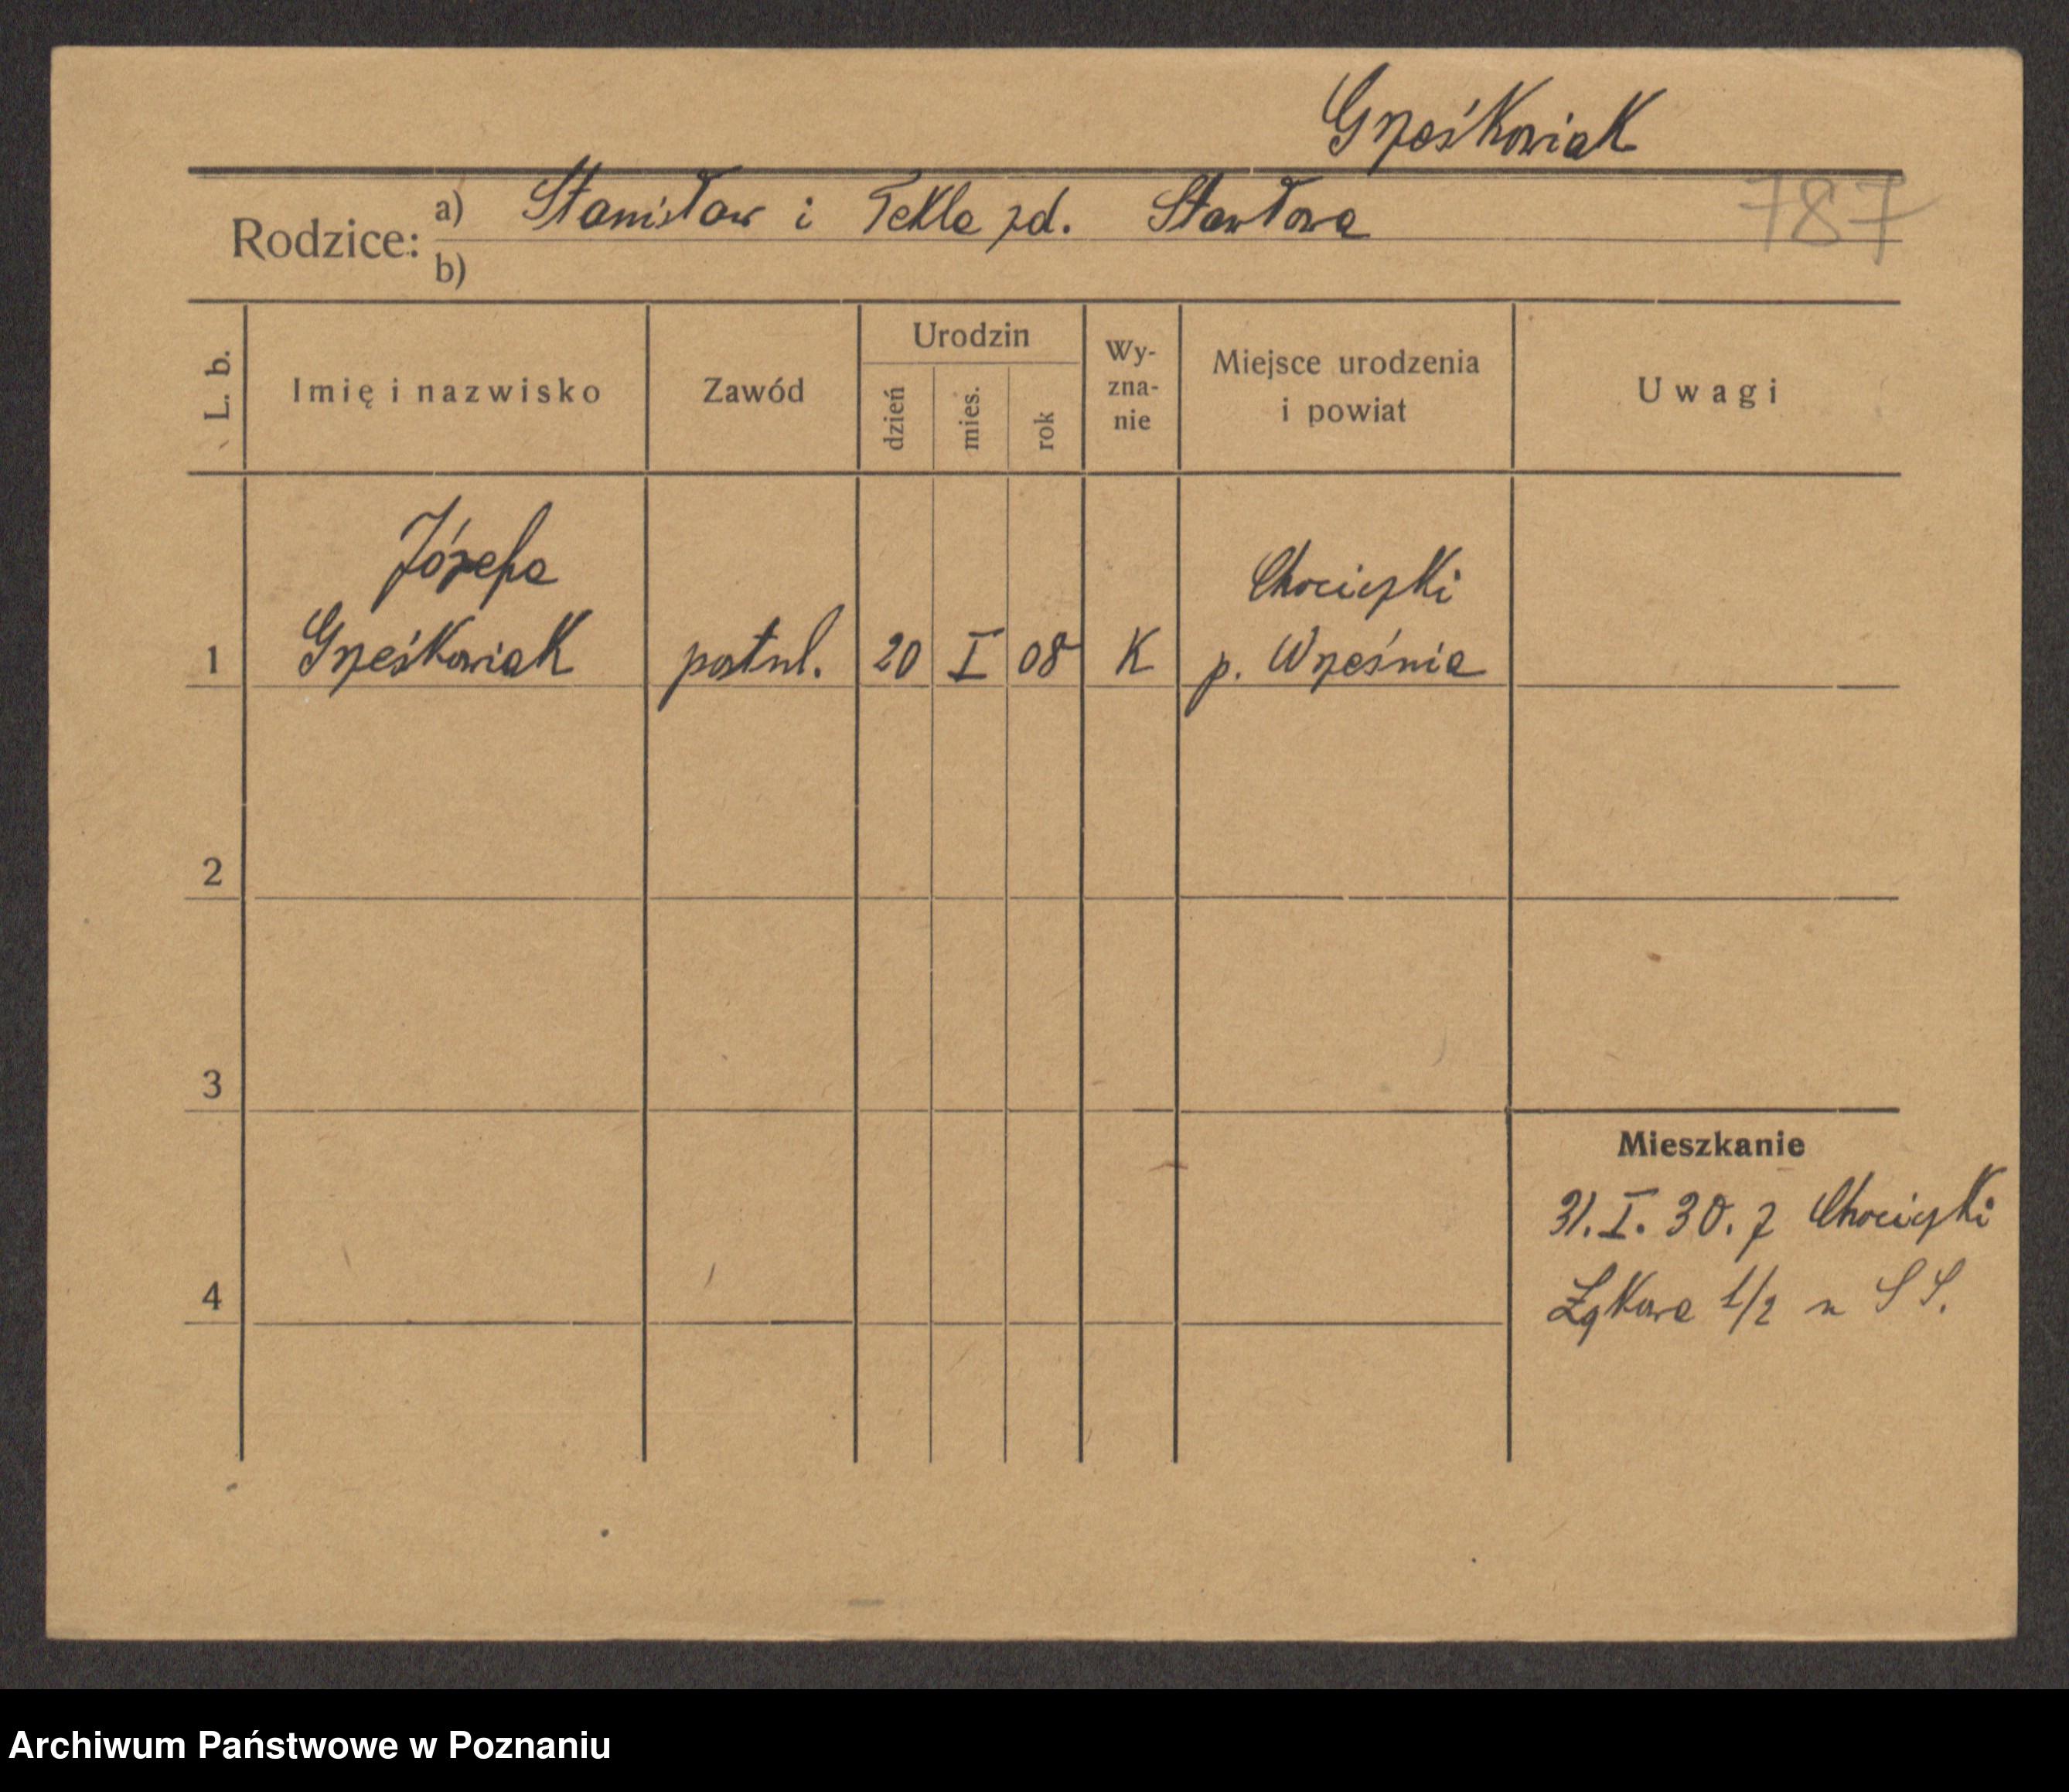 Grześkowiak
Rodzice: a) Stanisław i Tekla zd. Stawłowa
787
b)
L. b.
Imię i nazwisko
Zawód
Urodzin
dzień
mies.
rok
Wy-
zna-
nie
Miejsce urodzenia
i powiat
Uwagi
Józefa
Chociczki
1 Grześkowiak postul. 20 I 08 K p. Września
2
3
Mieszkanie
31. I. 30. z Chociczki
4
Łąkowa 1/2 u S S.
Archiwum Państwowe w Poznaniu